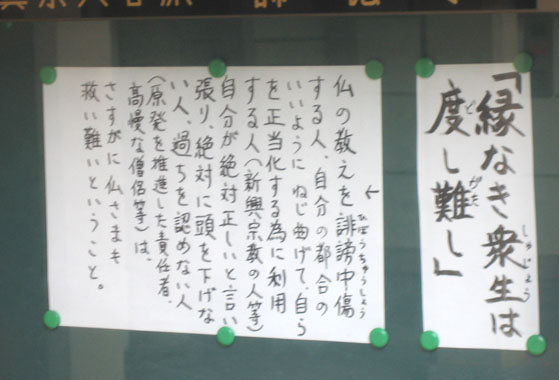 「縁なき衆生は
しゅじょう
度し難し」
ど がた
←
仏の教えを誹謗中傷
ひぼうちゅうしょう
する人、自分の都合の
いいようにねじ曲げて、自ら
を正当化する為に利用
する人(新興宗教の人等)
自分が絶対正しいと言い
張り、絶対に頭を下げな
い人、過ちを認めない人
(原発を推進した責任者、
高慢な僧侶等)は、
さすがに仏さまも
救い難いということ。